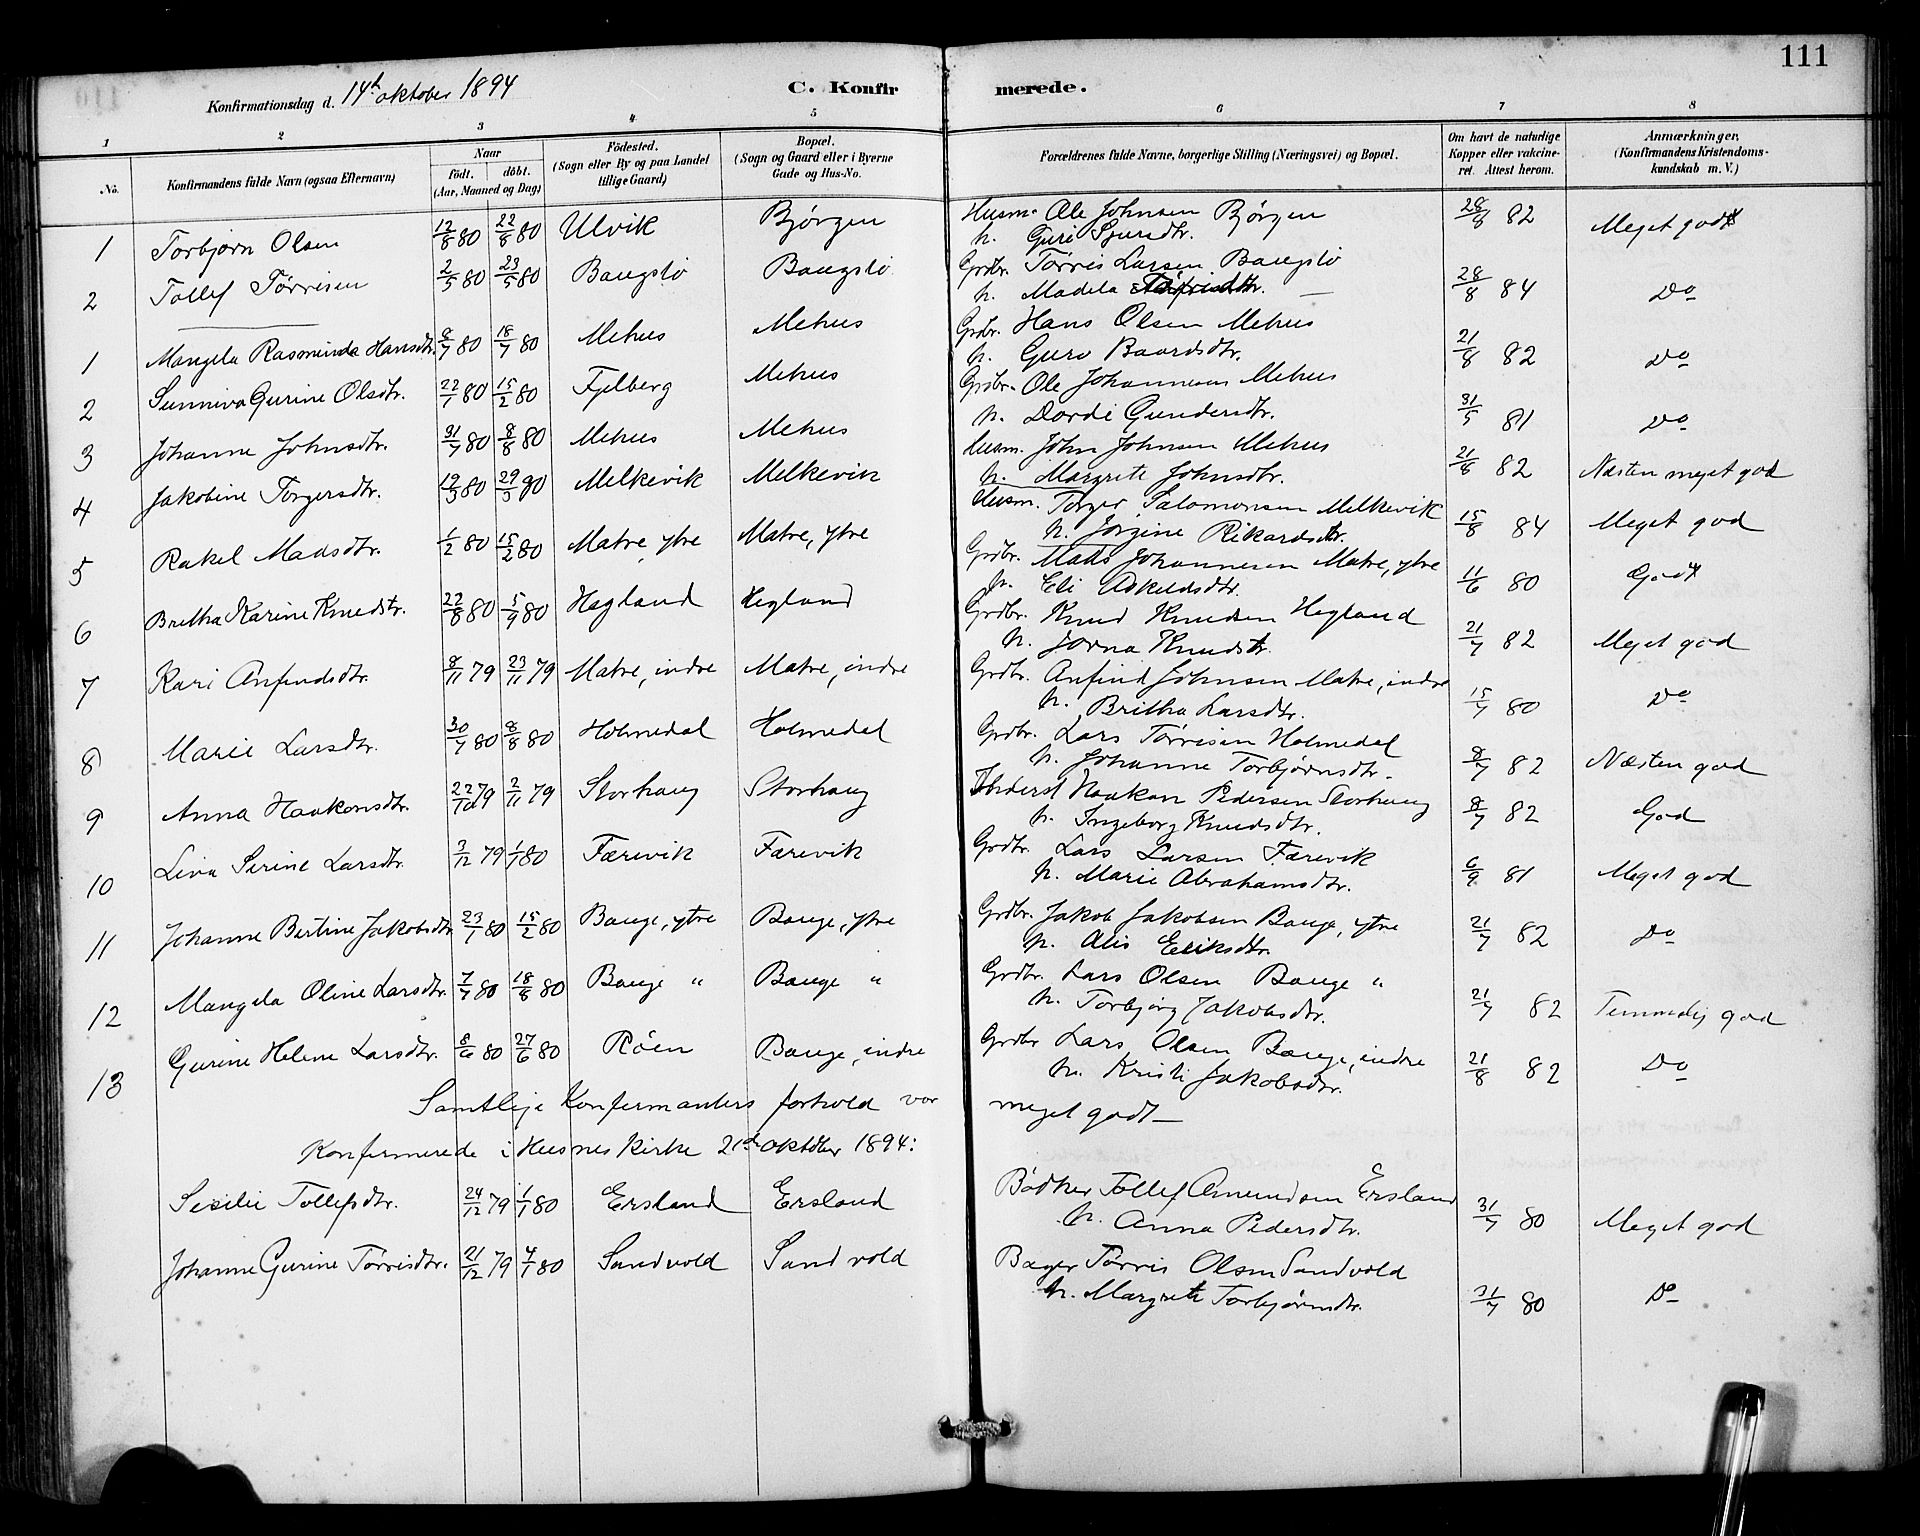 111
Konfirmationsdag d. 14de oktober 1894
C. Konfirmerede.
1 2 3 4 5 6 7 8
No. Konfirmandens fulde Navn (ogsaa Efternavn) Naar født. døbt. (Aar, Maaned og Dag) Fødested. (Sogn eller By og paa Landet tillige Gaard) Bopæl. (Sogn og Gaard eller i Byerne Gade og Hus-No. Forældrenes fulde Navne, borgerlige Stilling (Næringsvei) og Bopæl. Om havt de naturlige Kopper eller vakcineret. Attest herom. Anmærkninger. (Konfirmandens Kristendomskundskab m. V.)
1 Torbjørn Olsen 12/8 80 22/8 80 Ulvik Bjørgen Husm. Ole Johnsen Bjørgen 28/8 82 Meget godt
h. Guri Sjursdtr.
2 Tollef Tørrisen 2/5 80 23/5 80 Baugstø Baugstø Grdbr. Tørris Larsen Baugstø 28/8 84 Do
h. Madela
1 Mangela Rasminda Hansdtr. 8/7 80 18/7 80 Mehus Mehus Grdbr. Hans Olsen Mehus 21/8 82 Do
h. Guro Baardsdtr.
2 Sunniva Gurine Olsdtr. 22/1 80 15/2 80 Fjelberg Mehus Grdbr. Ole Johannesen Mehus 31/5 81 Do
h. Dordi Gundersdtr.
3 Johanne Johnsdtr. 31/7 80 8/8 80 Mehus Mehus Husm. John Johnsen Mehus 21/8 82 Næsten meget god
h. Margrete Johnsdtr.
4 Jakobine Torgersdtr. 19/3 80 29/3 80 Melkevik Melkevik Husm. Torger Salomonsen Melkevik 15/8 84 Meget god
h. Jorgine Rikardsdtr.
5 Rakel Madsdtr. 1/2 80 15/2 80 Matre, ytre Matre, ytre Grdbr. Mads Johannesen Matre, ytre 11/6 80 Godt
h. Eli Askeldsdtr.
6 Britha Karine Knudstr. 22/8 80 5/9 80 Høgland Høgland Grdbr. Knud Knudsen Høgland 21/7 82 Meget god
h. Jorna Knudstr.
7 Kari Anfindsdtr. 8/11 79 23/11 79 Matre, indre Matre, indre Grdbr. Anfind Johnsen Matre, indre 15/7 80 Do
h. Britha Larsdtr.
8 Marie Larsdtr. 30/7 80 8/8 80 Holmedal Holmedal Grdbr. Lars Tørrisen Holmedal 8/7 82 Næsten god
h. Johanne Torbjørnsdtr.
9 Anna Haakonsdtr. 22/10 79 2/11 79 Storhaug Storhaug Haakon Pedersen Storhaug 8/7 82 God
h. Ingeborg Knudsdtr.
10 Lina Serine Larsdtr. 3/12 79 1/1 80 Færevik Færevik Grdbr. Lars Larsen Færevik 6/9 81 Meget god
h. Marie Abrahamsdtr.
11 Johanne Bertine Jakobsdtr. 23/1 80 15/2 80 Bauge, ytre Bauge, ytre Grdbr. Jakob Jakobsen Bauge, ytre 21/7 82 Do
h. Alis Eriksdtr.
12 Mangela Oline Larsdtr. 7/7 80 18/8 80 Bauge " Bauge " Grdbr. Lars Olsen Bauge " 21/7 82 Temmelig god
h. Torbjørg Jakobsdtr.
13 Gurine Helene Larsdtr. 8/6 80 27/6 80 Røen Bauge, indre Grdbr Lars Olsen Bauge, indre 21/8 82 Do
h. Kristi Jakobsdtr.
Samtlige Konfirmanters forhold var meget godt —
Konfirmerede i Husnes Kirke 21de oktober 1894:
Sesilie Tollefsdtr. 24/12 79 1/1 80 Ersland Ersland Bødker Tollef Amundsen Ersland 31/7 80 Meget god
h. Anna Pedersdtr.
Johanne Gurine Tørrisdtr. 21/12 79 4/1 80 Sandvold Sandvold Bager Tørris Olsen Sandvold 31/7 80 Do
h. Margrete Torbjørnsdtr.